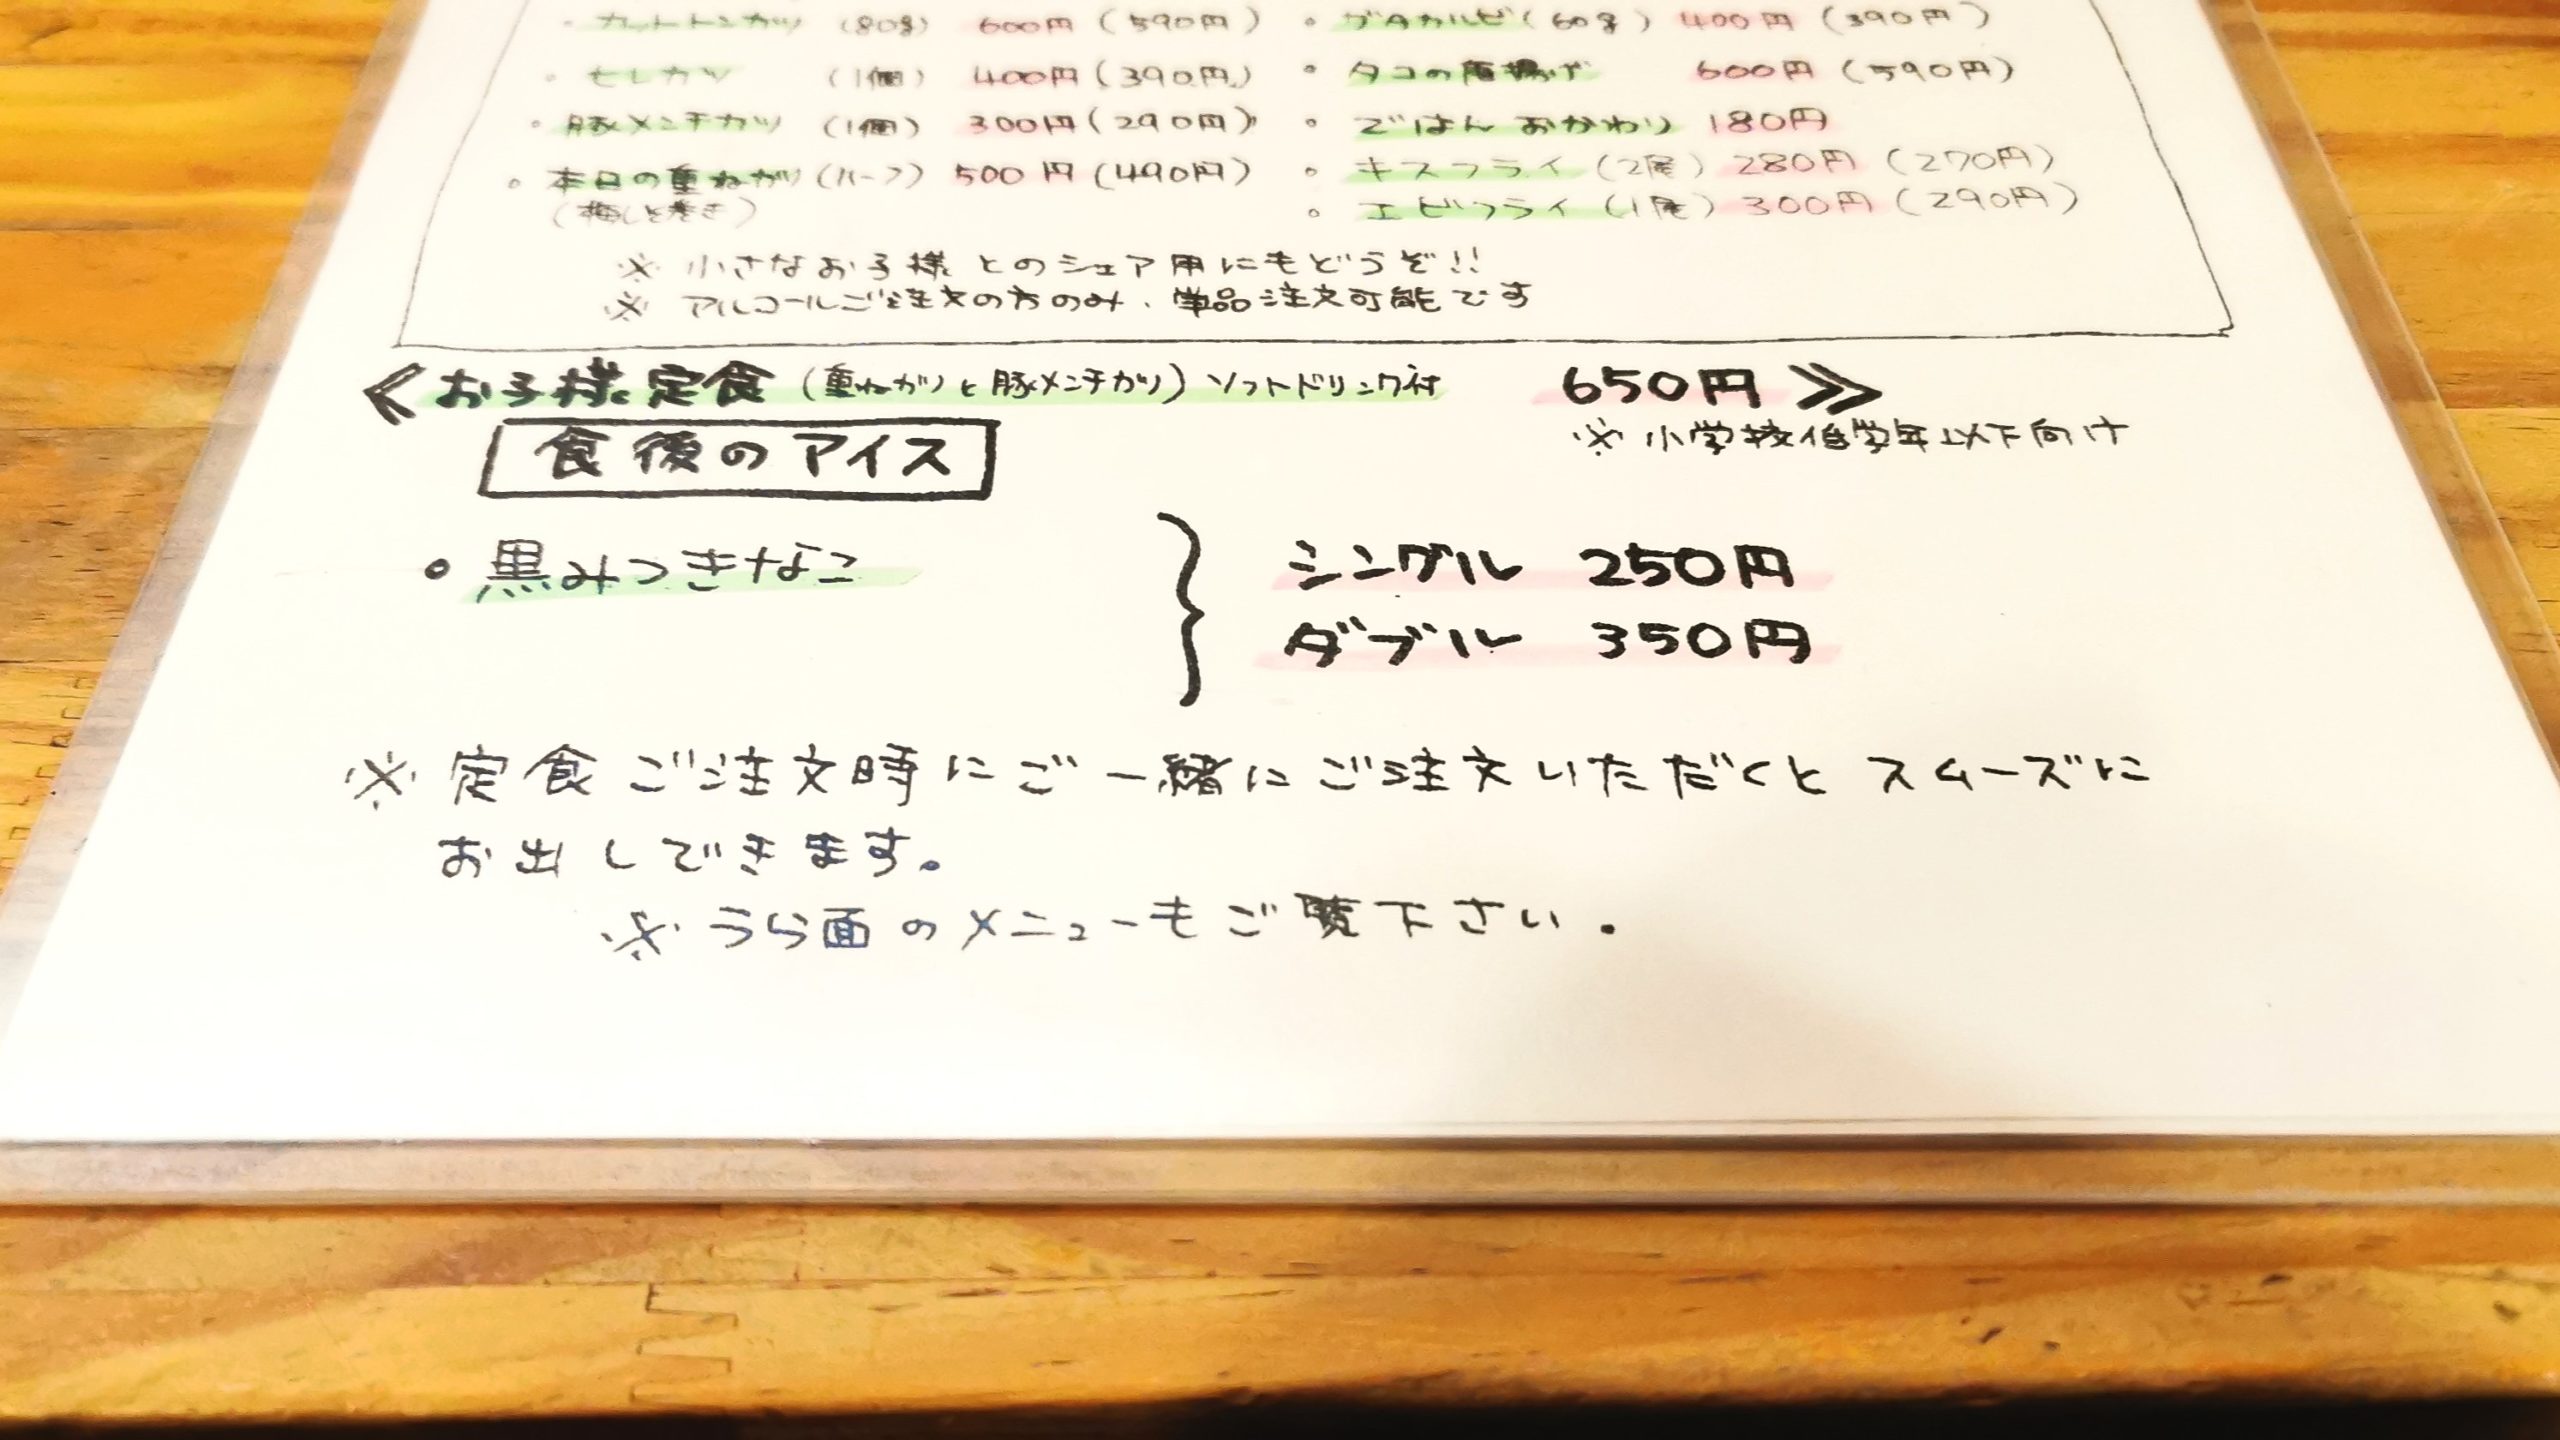 ・カットトンカツ (80g) 600円 (590円)
・ヒレカツ (1個) 400円 (390円)
・豚メンチカツ (1個) 300円 (290円)
・本日の重ねカツ (ハーフ) 500円 (490円)
(梅しそ巻き)
・ブタカルビ (60g) 400円 (390円)
・タコの唐揚げ 600円 (590円)
・ごはんおかわり 180円
・キスフライ (2尾) 280円 (270円)
・エビフライ (1尾) 300円 (290円)
※ 小さなお子様とのシェア用にもどうぞ!!
※ アルコールご注文の方のみ、単品注文可能です
≪お子様定食 (重ねカツと豚メンチカツ) ソフトドリンク付 650円≫
※ 小学校低学年以下向け
食後のアイス
・黒みつきなこ
シングル 250円
ダブル 350円
※ 定食ご注文時にご一緒にご注文いただくとスムーズに
お出しできます。
※ うら面のメニューもご覧下さい.